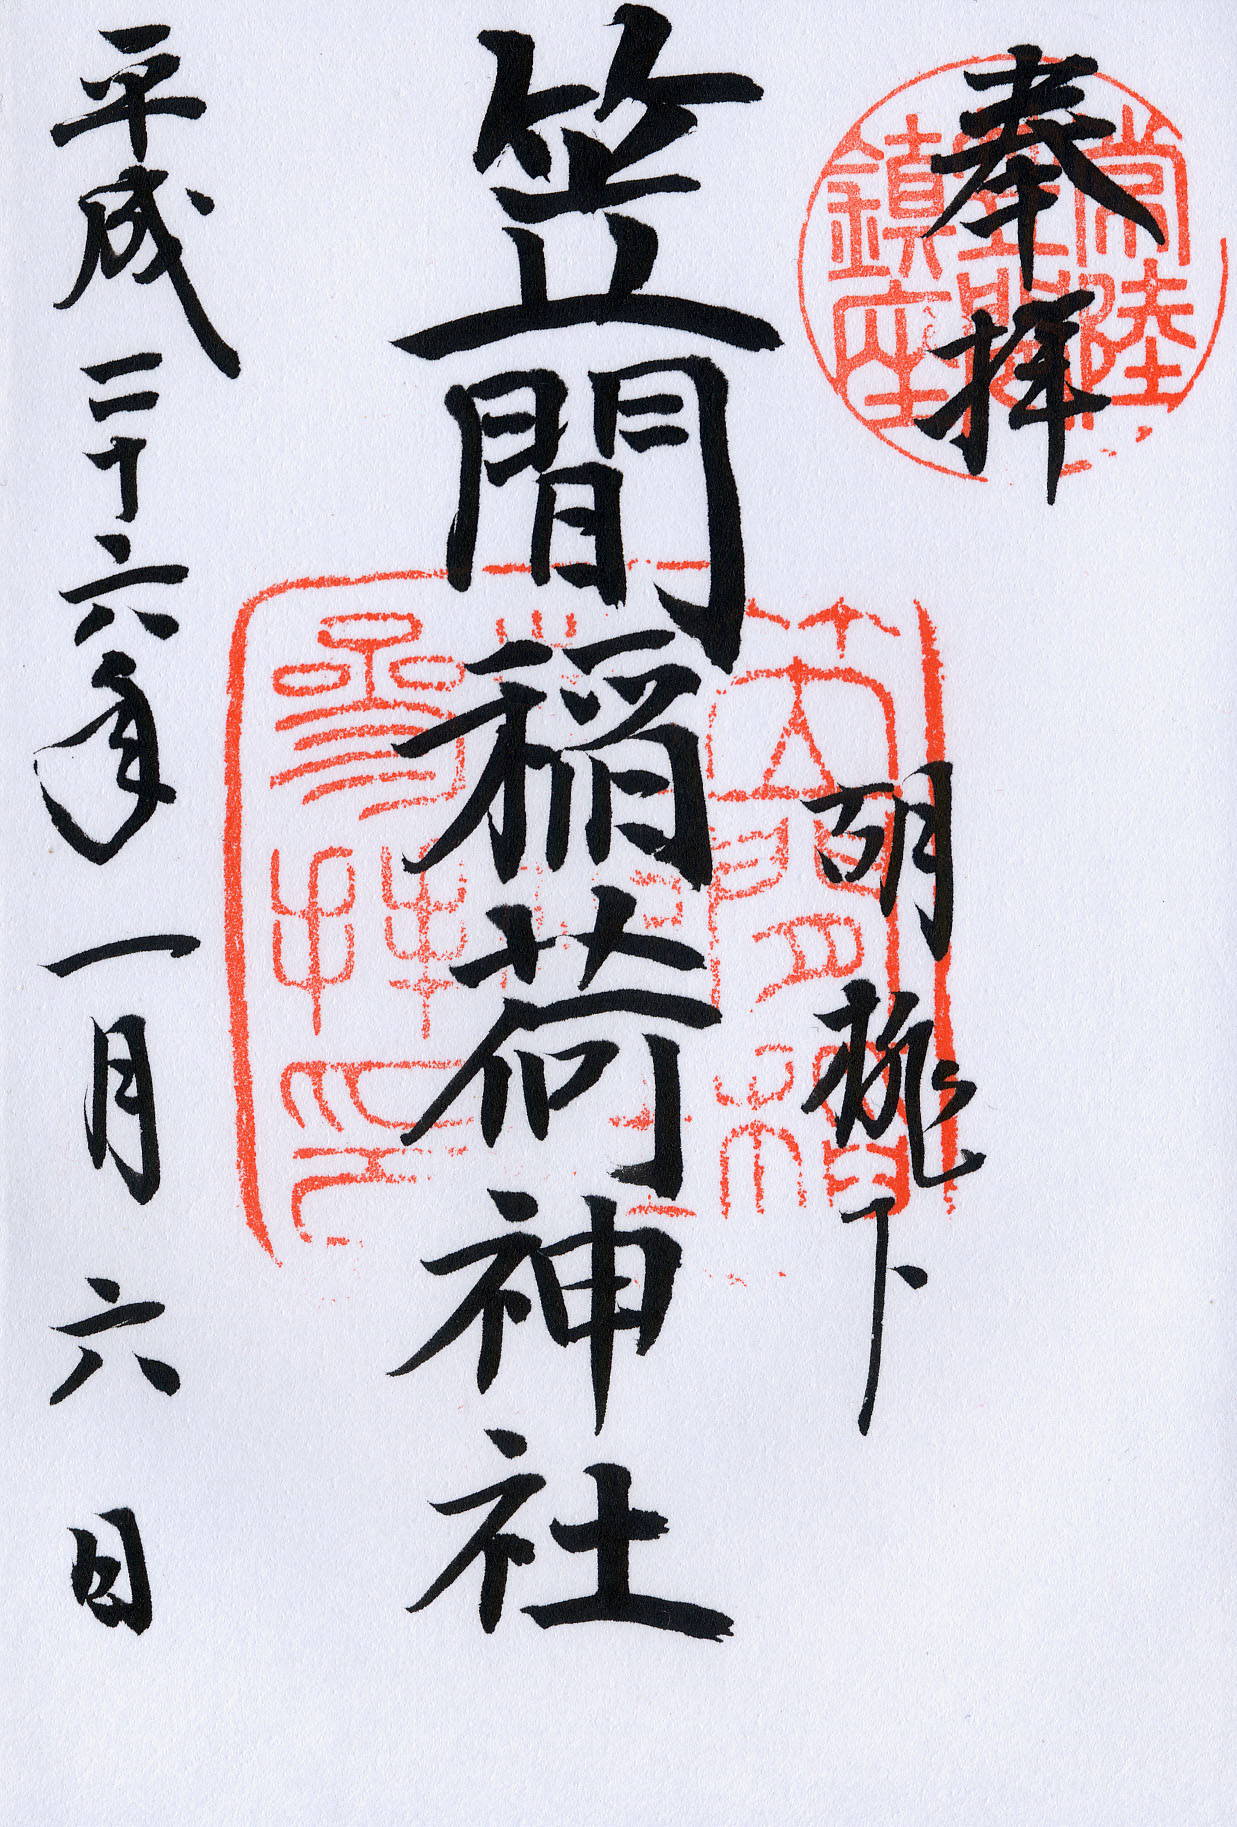 奉拝
常陸
笠間
鎮座
胡桃下
笠間稲荷神社
参拝印
平成二十六年一月六日